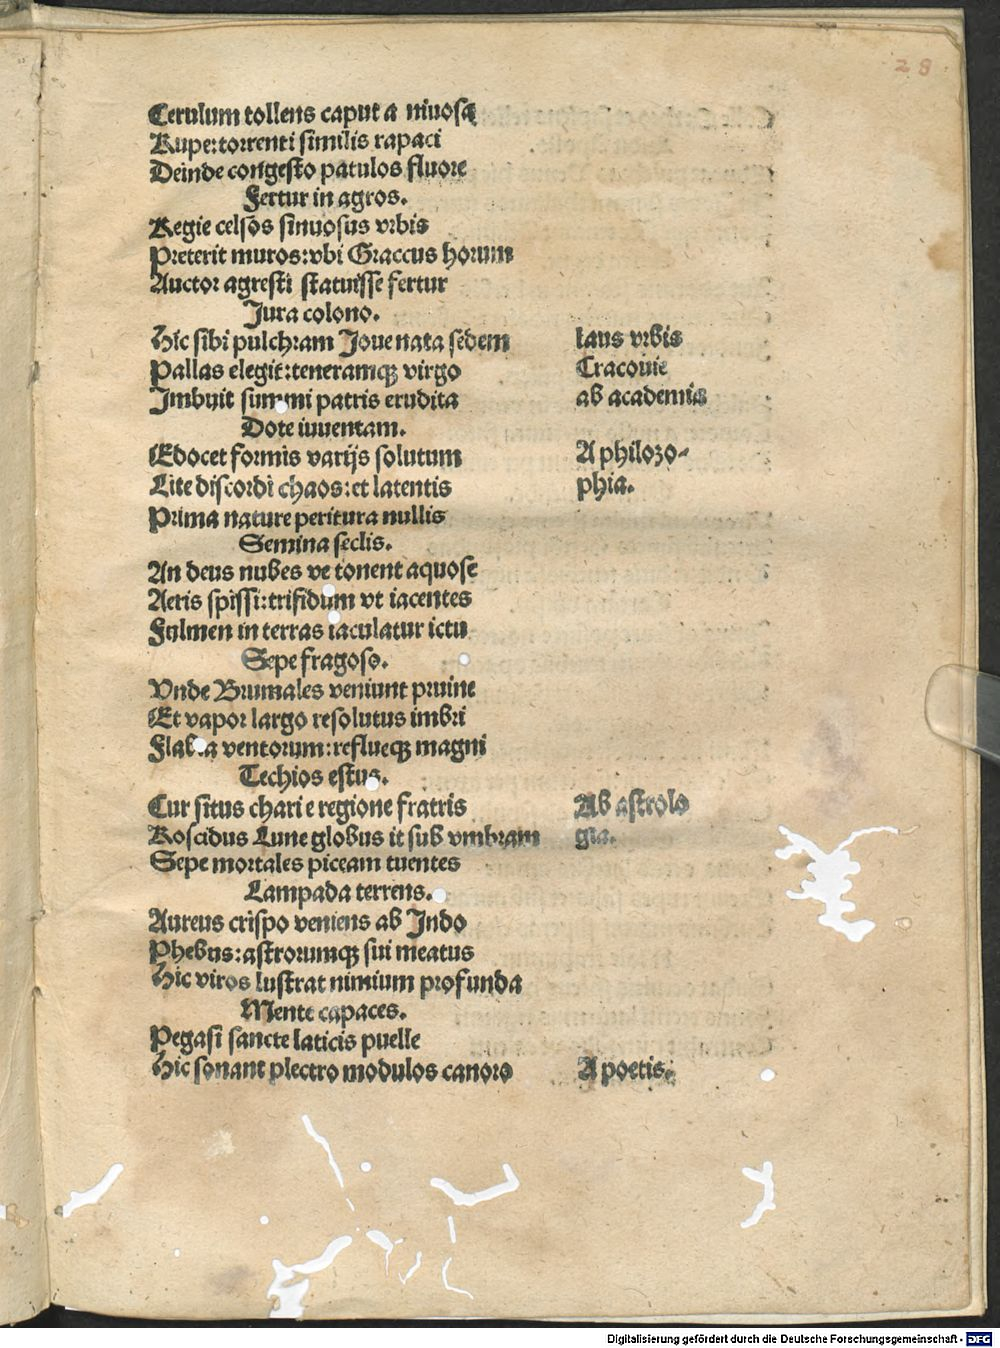 28
Cerulum tollens caput a niuosa
Rupe: torrenti similis rapaci
Deinde congesto patulos fluore
Fertur in agros.
Regie celsos sinuosus vrbis
Preterit muros: vbi Graccus horum
Auctor agresti statuisse fertur
Jura colono.
Hic sibi pulchram Joue nata sedem
laus vrbis
Pallas elegit: teneramqꝫ virgo
Cracouie
Imbuit summi patris erudita
ab academis
Dote iuuentam.
Edocet formis varijs solutum
A philozo-
Lite discordi chaos: et latentis
phia.
Prima nature peritura nullis
Semina seclis.
An deus nubes ve tonent aquose
Aeris spissi: trifidum vt iacentes
Fulmen in terras iaculatur ictu
Sepe fragoso.
Vnde Brumales veniunt pruine
Et vapor largo resolutus imbri
Flabra ventorum: reflueqꝫ magni
Techios estus.
Cur situs chari e regione fratris
Ab astrolo
Roscidus Lune globus it sub vmbram
gia.
Sepe mortales piceam tuentes
Lampada terrens.
Aureus crispo veniens ab Indo
Phebus: astrorumqꝫ sui meatus
Hic viros lustrat nimium profunda
Mente capaces.
Pegasi sancte laticis puelle
Hic sonant plectro modulos canoro
A poetis.
Digitalisierung gefördert durch die Deutsche Forschungsgemeinschaft - DFG